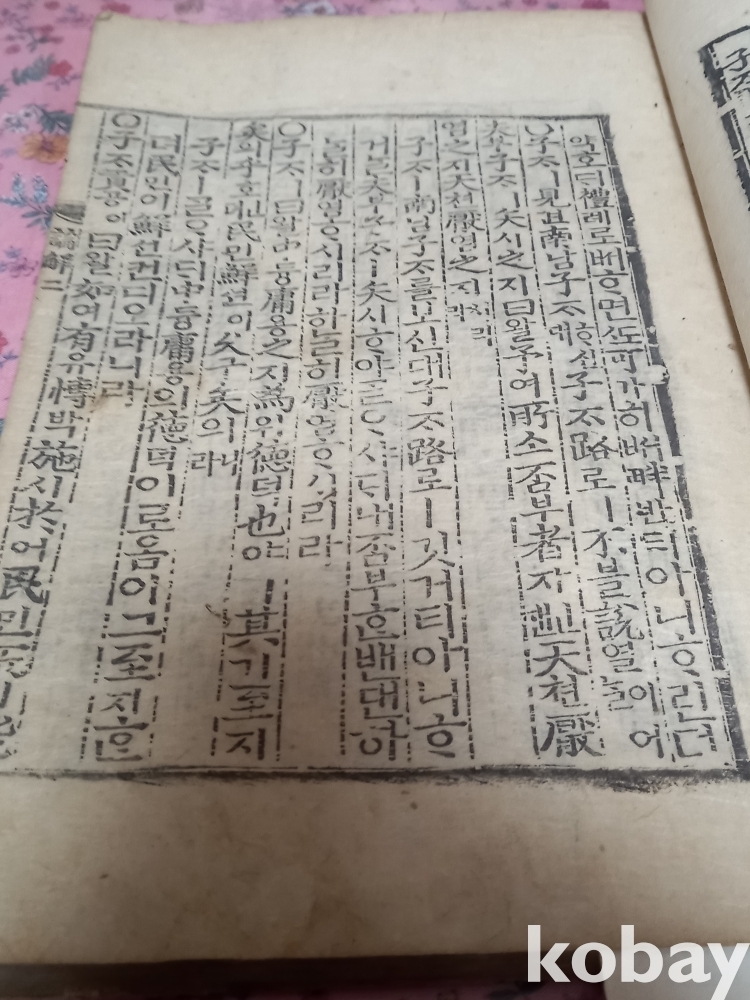 약호ᄃᆡ禮례로ᄡᅥᄒᆞ면ᄯᅩ可가히ᄡᅥ畔반티아니ᄒᆞ린뎌
○子ᄌᆞㅣ見견南남子ᄌᆞᄒᆞ신대子ᄌᆞ路로ㅣ不블說열이어ᄂᆞᆯ
夫부子ᄌᆞㅣ矢시之지曰왈予여所소否부者쟈ㅣㄴ댄天텬厭
염之지天텬厭염之지
子ᄌᆞㅣ南남子ᄌᆞ를보신대子ᄌᆞ路로ㅣ깃거티아닌ᄒᆞ
거ᄂᆞᆯ夫부子ᄌᆞㅣ矢시ᄒᆞ야ᄀᆞᆯᄋᆞ샤ᄃᆡ내否부ᄒᆞᆫ밴댄하
ᄂᆞᆯ히厭염ᄒᆞ시리라하ᄂᆞᆯ히厭염ᄒᆞ시리라
○子ᄌᆞㅣ曰왈中듕庸용之지爲위德덕也야ㅣ其기至지
矣의乎호ㅣㄴ뎌民민鮮션이久구矣의니라
子ᄌᆞㅣᄀᆞᆯᄋᆞ샤ᄃᆡ中듕庸용의德덕이로옴이그至지ᄒᆞᆫ
뎌民민이鮮션컨디오라니라
○子ᄌᆞ貢공이曰왈如여有유博박施시於어民민而이能
論解二
kobay